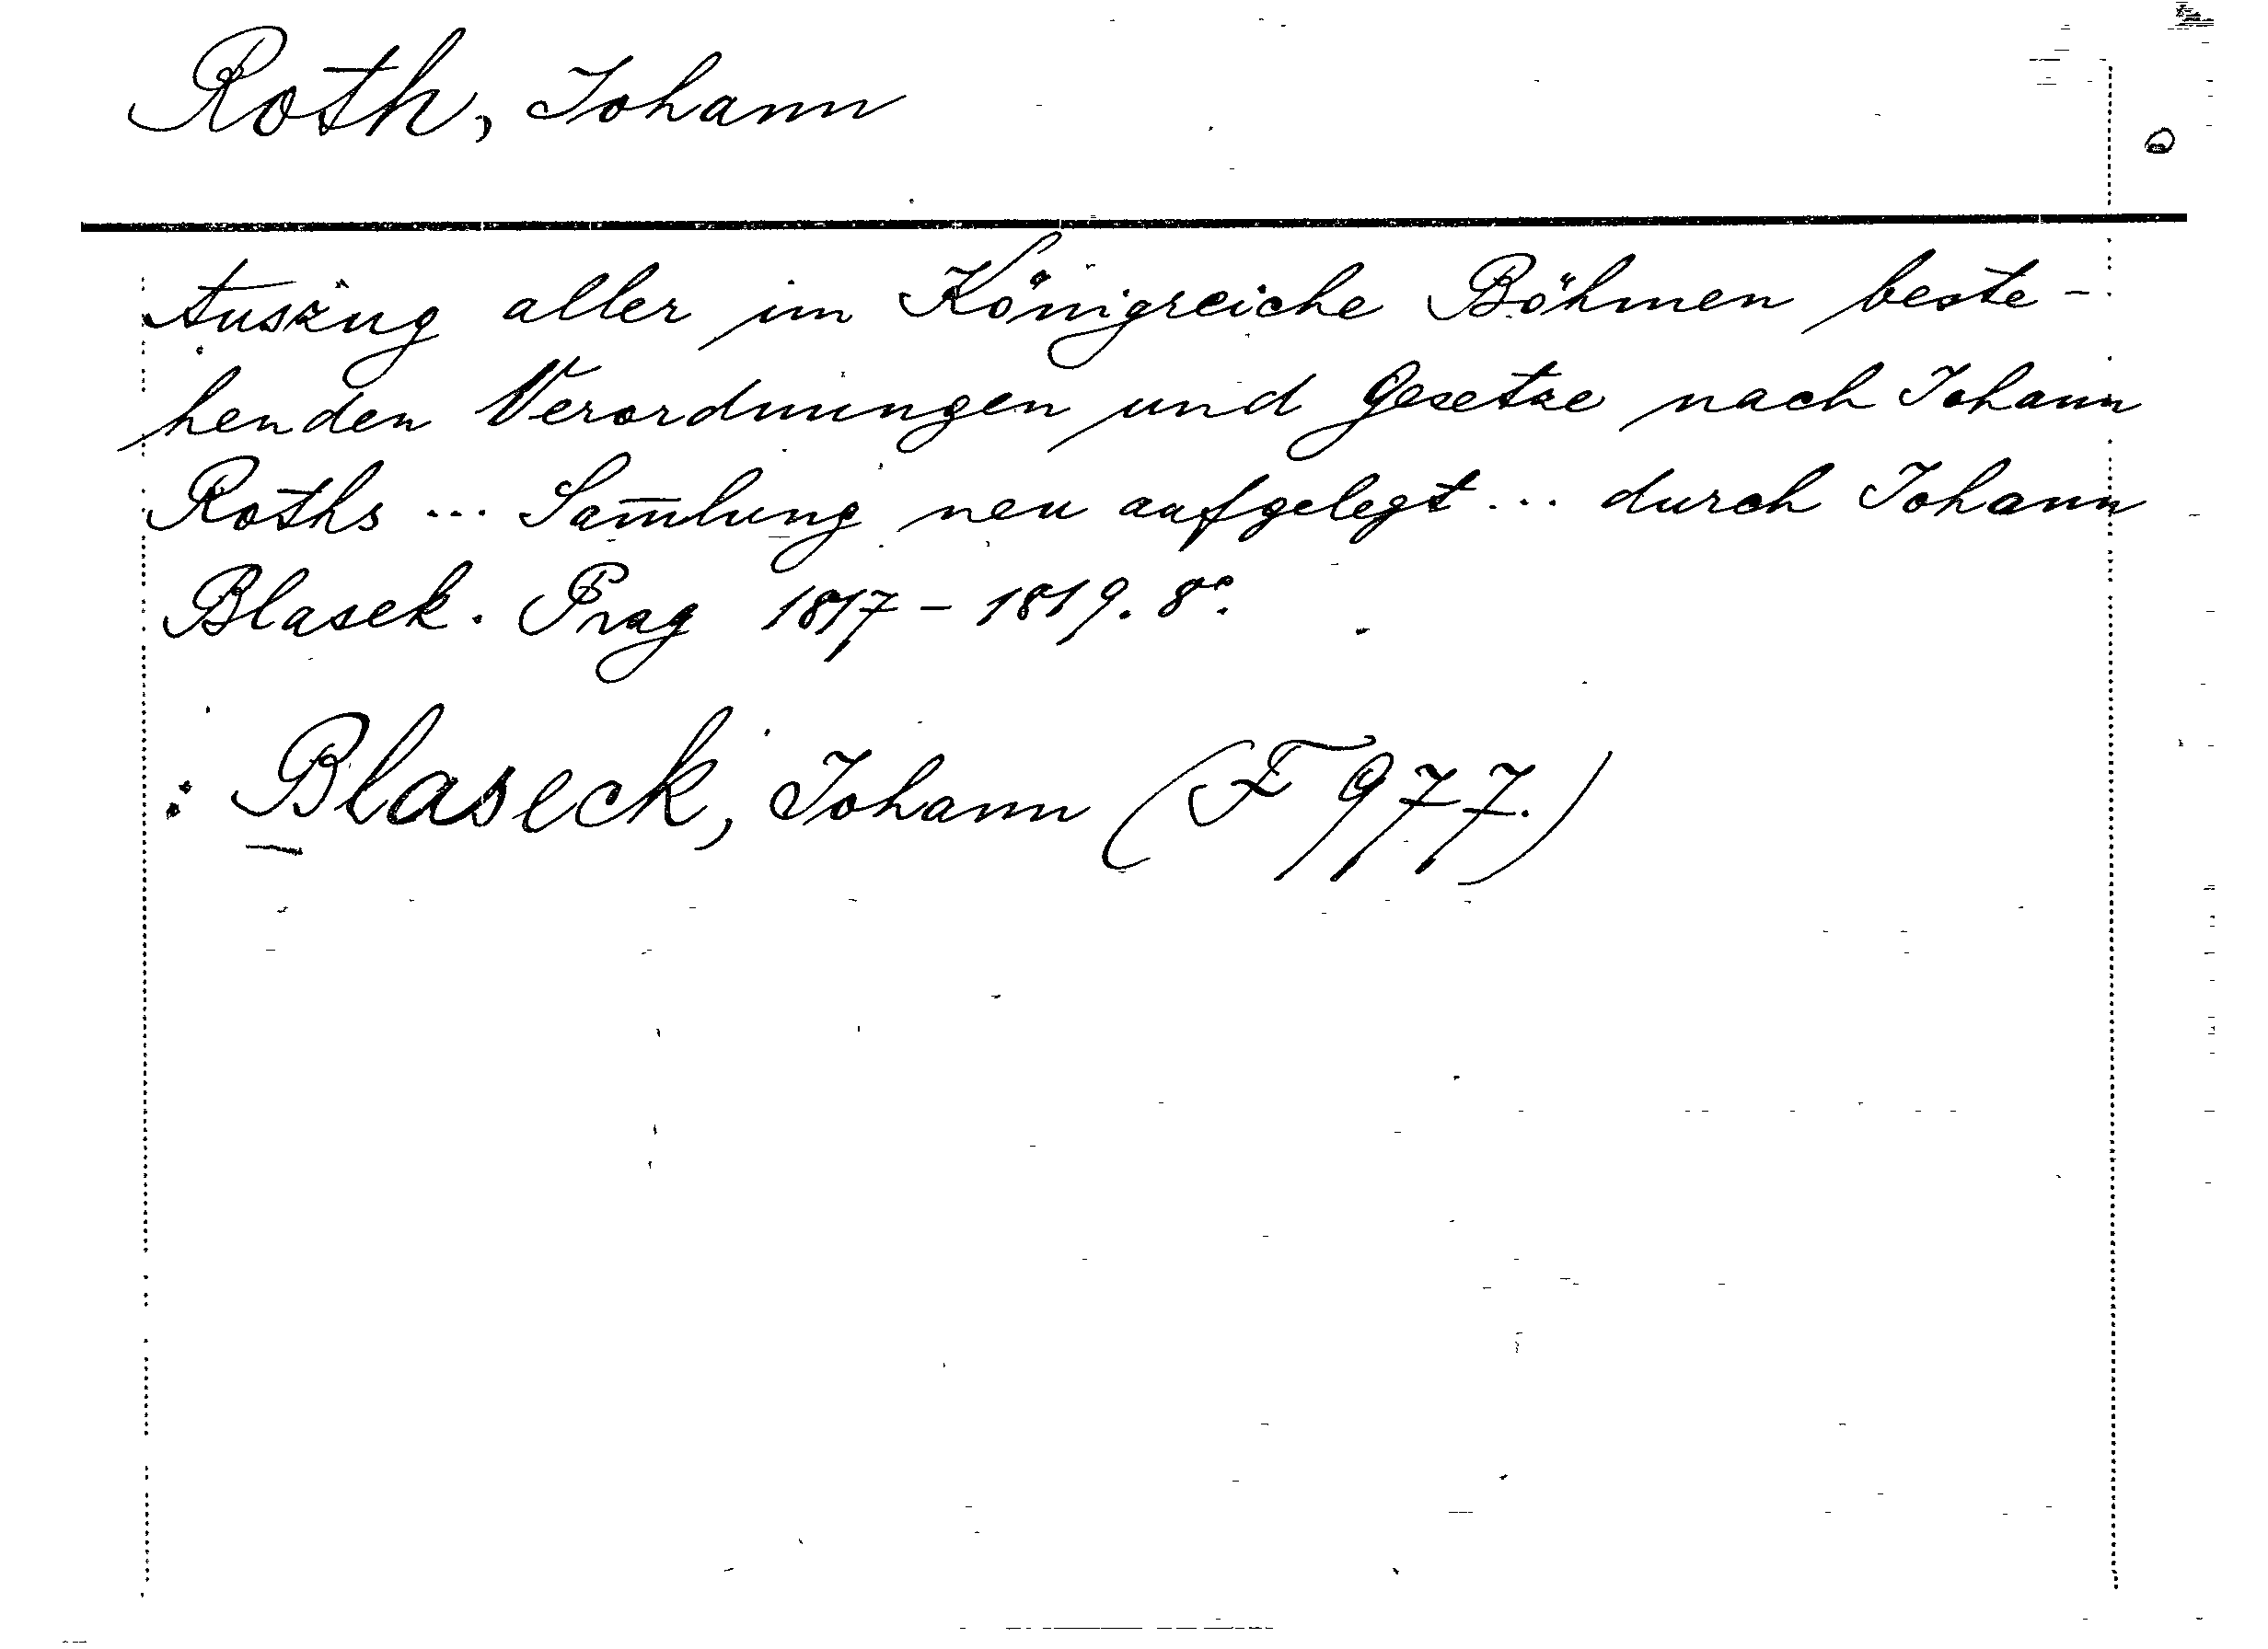 Roth, Johann
Auszug aller im Königreiche Böhmen beste-
henden Verordnungen und Gesetze nach Johann
Roths ... Sam̅lung neu aufgelegt ... durch Johann
Blasek. Prag 1817-1819. 8°.
: Blaseck, Johann (F 977.)